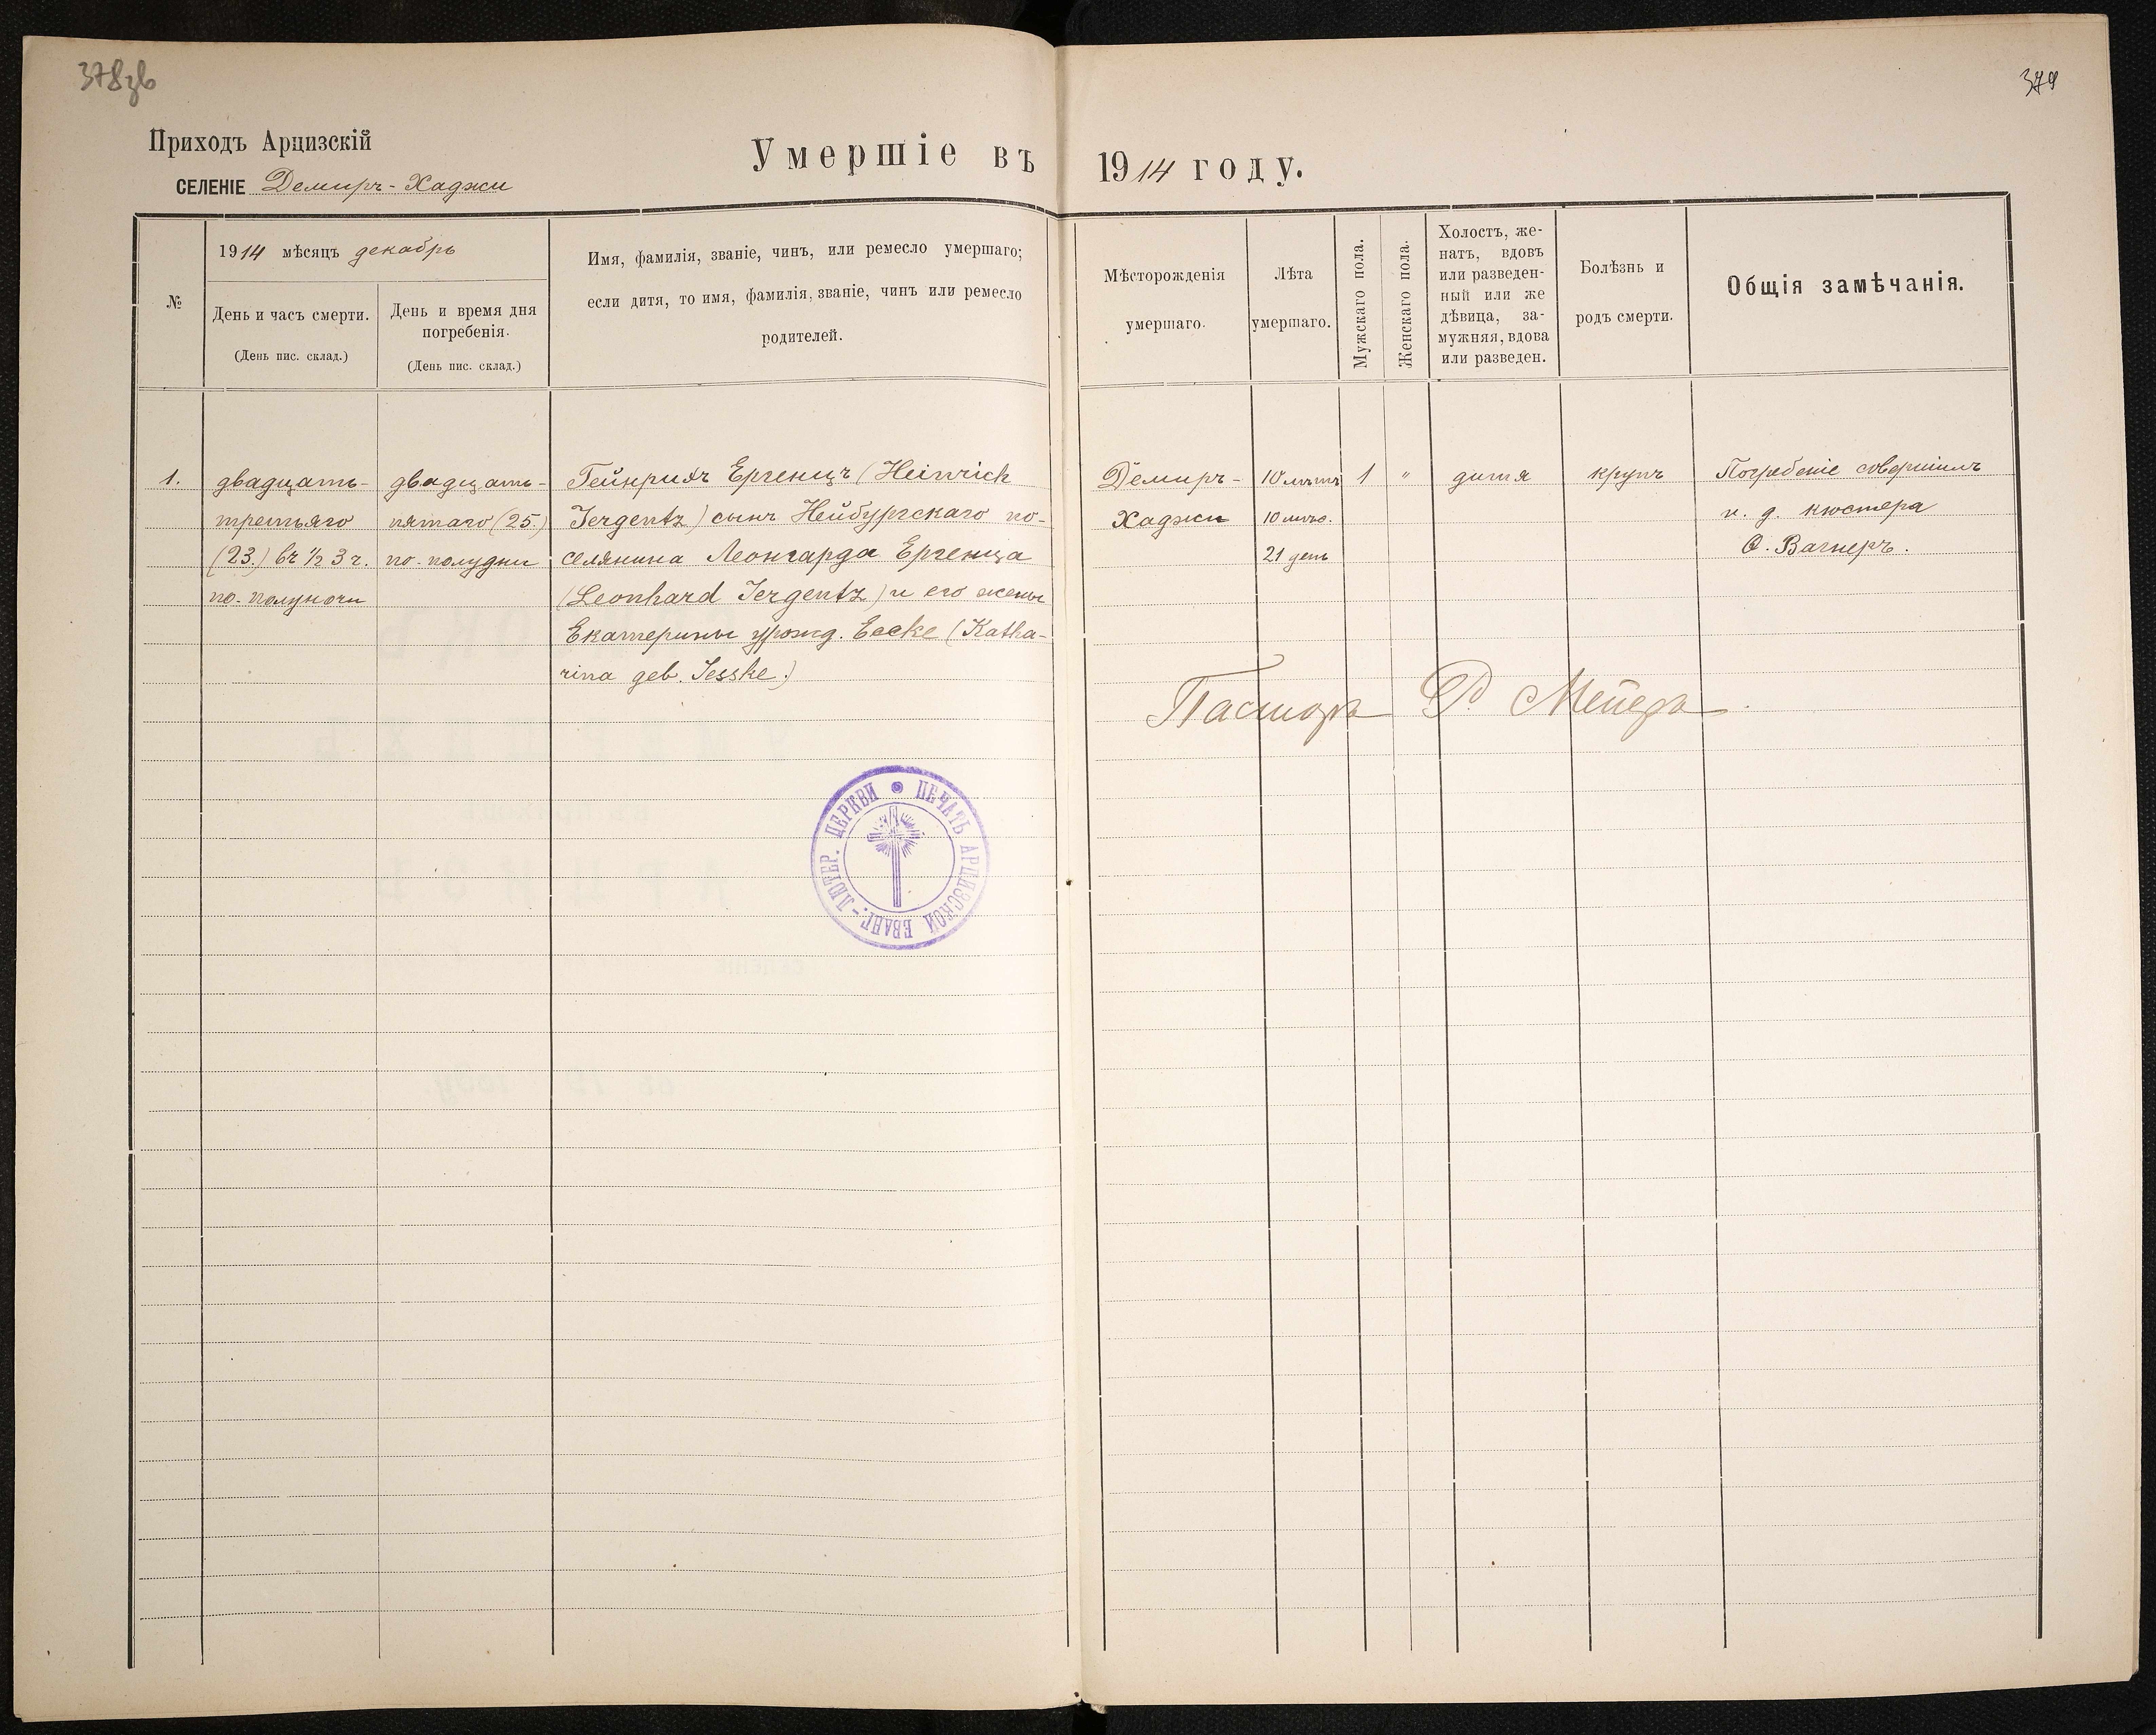 378зв
379
Приходъ Арцизскій
СЕЛЕНІЕ Демиръ-Хаджи
Умершіе въ 1914 году.
№
1914 мѣсяцъ декабрь
День и часъ смерти.
(День пис. склад.)
День и время дня
погребенія.
(День пис. склад.)
Имя, фамилія, званіе, чинъ, или ремесло умершаго;
если дитя, то имя, фамилія, званіе, чинъ или ремесло
родителей.
Мѣсторожденія
умершаго.
Лѣта
умершаго.
Мужскаго пола.
Женскаго пола.
Холостъ, же-
натъ, вдовъ
или разведен-
ный или же
дѣвица, за-
мужняя, вдова
или разведен.
Болѣзнь и
родъ смерти.
Общія замѣчанія.
1.
двадцать-
третьяго
(23.) въ ½ 3 ч.
по-полуночи
двадцать-
пятаго (25.)
по-полудни
Гейнрихъ Ергенцъ (Heinrich
Jergentz) сынъ Нейбургскаго по-
селянина Леонгарда Ергенца
(Leonhard Jergentz) и его жены
Екатерины урожд. Ееске (Katha-
rina geb. Jesske.)
Демиръ-
Хаджи
10 лѣтъ
10 мѣс.
21 день
1
"
дитя
крупъ
Погребеніе совершилъ
и. д. кюстера
О. Вагнеръ.
Пасторъ Р. Мейеръ
ПЕЧАТЬ АРЦИЗСКОЙ ЕВАНГ.-ЛЮТЕР. ЦЕРКВИ